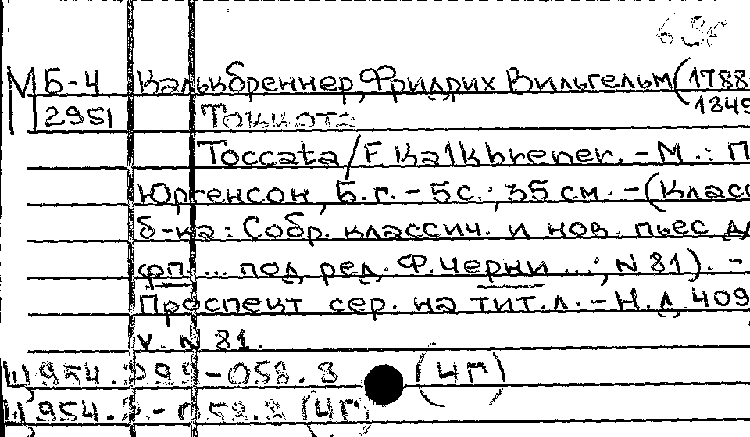 МБ-4 Калькбреннер, Фридрих Вильгельм (1788
2951 Токката 1849
Toccata / F. Kalkbrener. - М. : П
Юргенсон, Б.г. - 5с. ; 35 см. - (Класс
б-ка : Собр. классич. и нов. пьес дл
фп. ... под ред. Ф. Черни ... ; N 81). -
Проспект сер. на тит. л. - Н.д. 409
V. N 81.
Щ954. -058.3 (4Г)
Щ954. -058.3 (4Г)